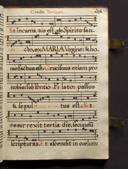 Credo
Et incarnatus est de Spiritu san
cto, ex MARIA Virgine: & ho
mo factus est. Crucifixus etiam pro
nobis: sub Pontio Pilato passus
et sepul tus est. Et
resurrexit tertia die, secundum
scripturas. Et ascendit in caelum